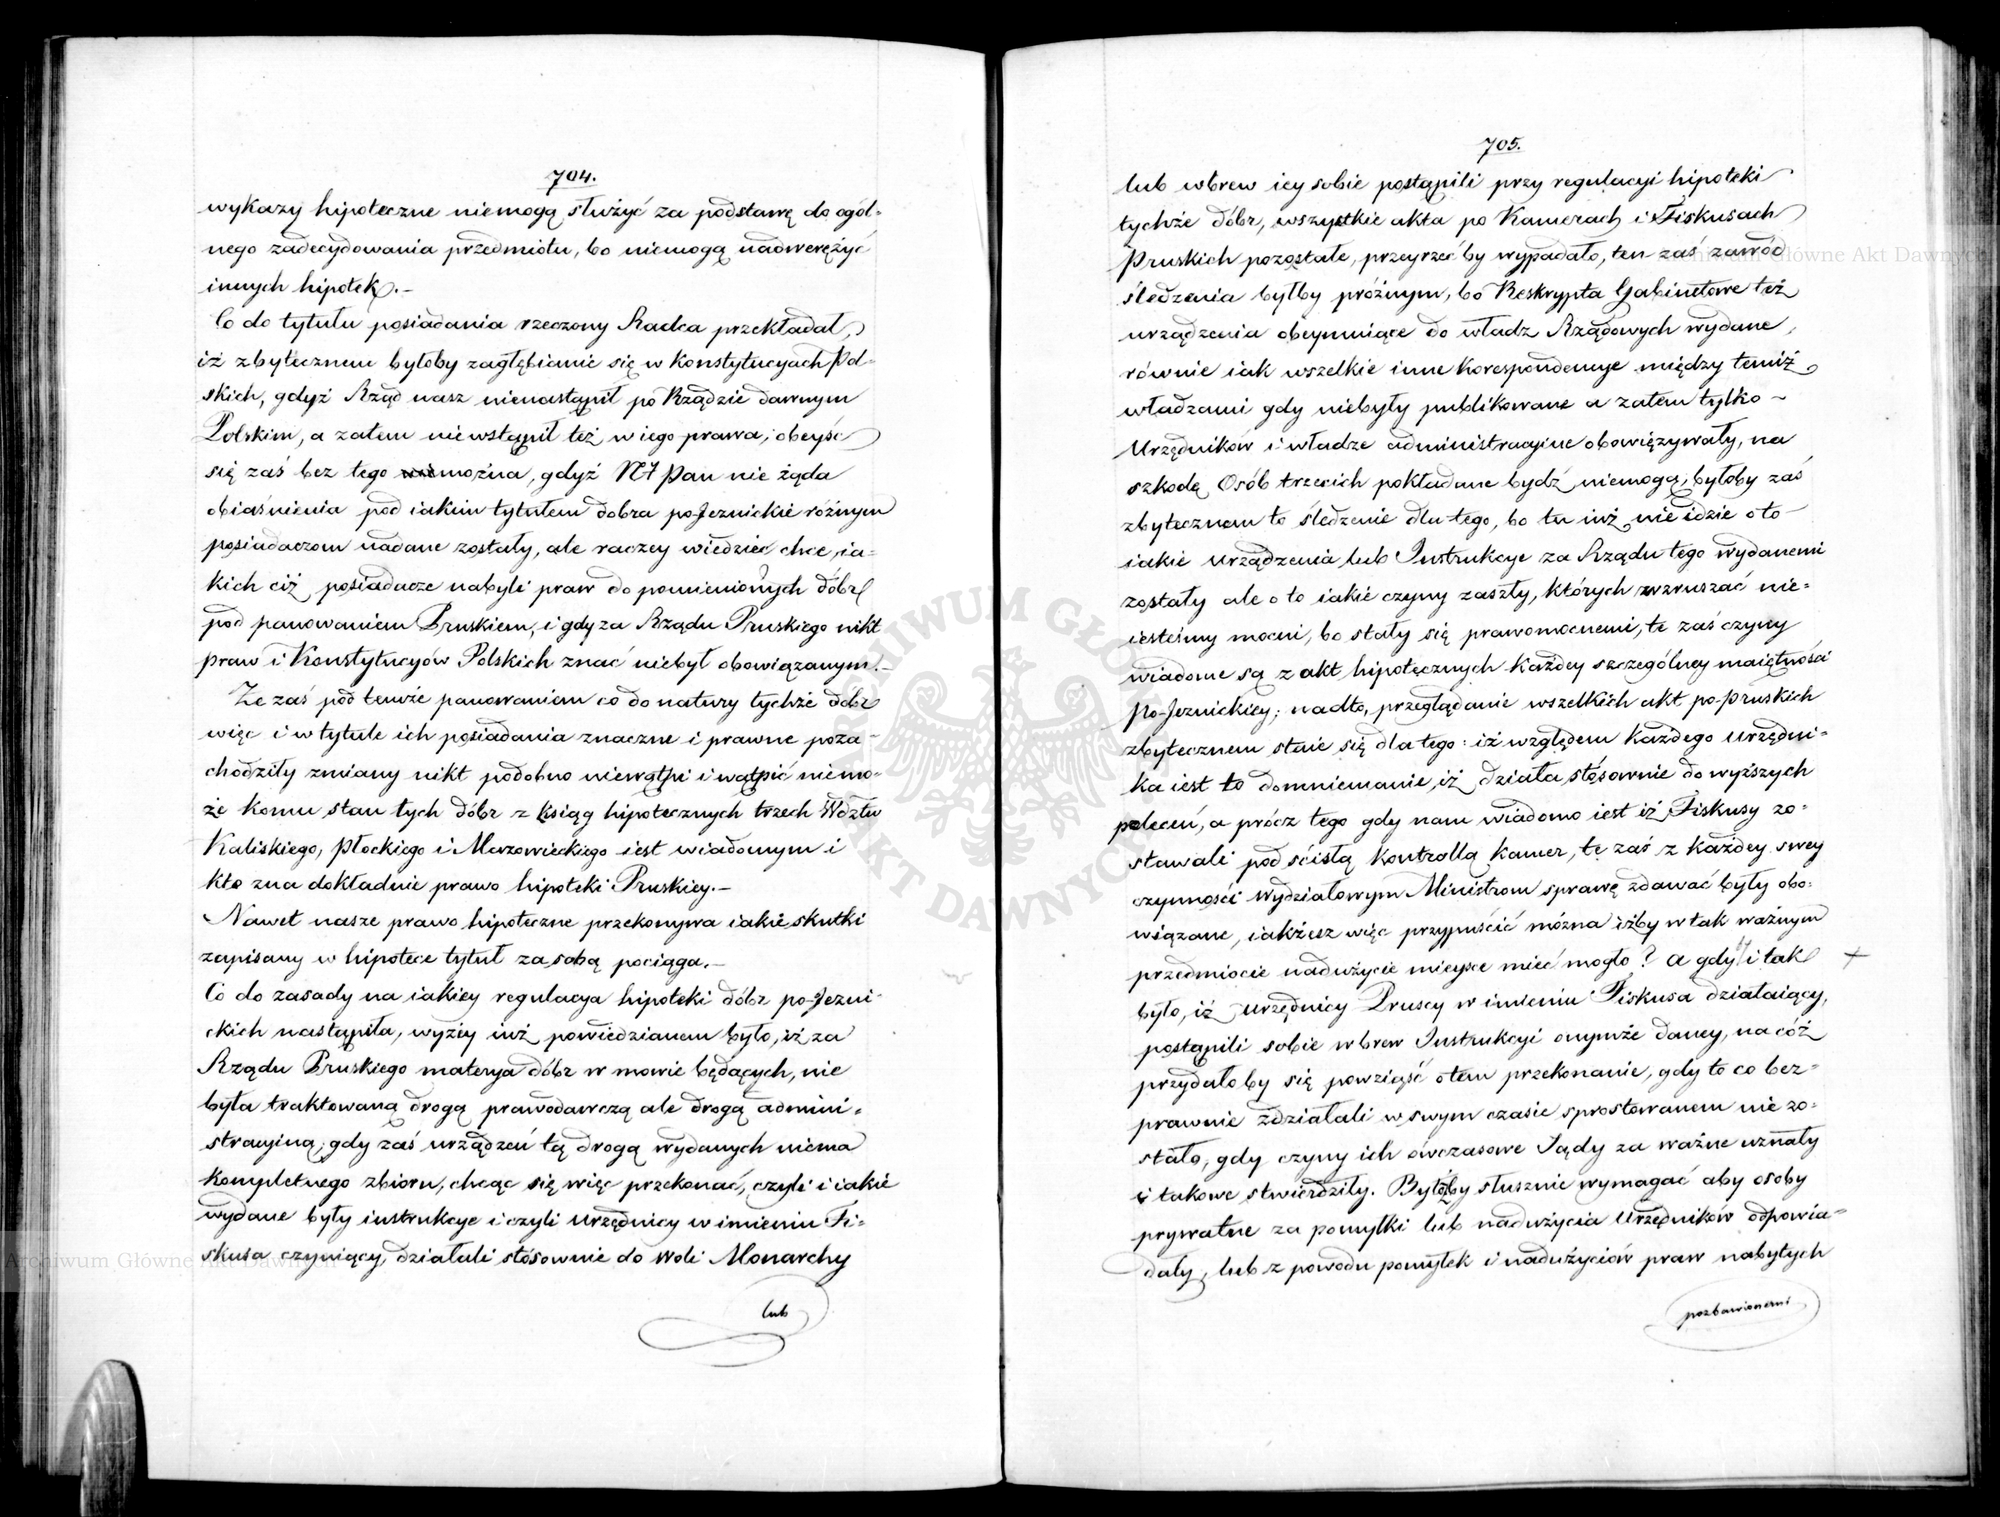 704.
wykazy hipoteczne niemogą służyć za podstawę do ogól-
nego zadecydowania przedmiotu, bo niemogą nadweręźyć
innych hipotek.-
Co do tytułu posiadania rzeczony Radca przekładał,
iż zbytecznem byłoby zagłębianie się w Konstytucyach Pol-
skich, gdyż Rząd nasz nienastąpił po Rządzie dawnym
Polskim, a zatem niewstąpił też w iego prawa; obeyść
się zaś bez tego można, gdyż NJ Pan nie żąda
obiaśnienia pod iakim tytułem dobra po-Jeznickie różnym
posiadaczom nadane zostały, ale raczey wiedzieć chce, ia-
kich ciż posiadacze nabyli praw do pomienionych dóbr
pod panowaniem Pruskiem, i gdy za Rządu Pruskiego nikt
praw i Konstytucyów Polskich znać niebył obowiązanym.-
Że zaś pod temże panowaniem co do natury tychże dóbr
więc i w tytule ich posiadania znaczne i prawne poza-
chodziły zmiany nikt podobno niewątpi i wątpić niemo-
że komu stan tych dóbr z ksiąg hipotecznych trzech Wdztw
Kaliskiego, Płockiego i Mazowieckiego iest wiadomym i
kto zna dokładnie prawo hipoteki Pruskiey.-
Nawet nasze prawo hipoteczne przekonywa iakie skutki
zapisany w hipotece tytuł za sobą pociąga.-
Co do zasady na iakiey regulacya hipoteki dóbr po-Jezni-
ckich nastąpiła, wyżey iuż powiedzianem było, iż za
Rządu Pruskiego materya dóbr w mowie będących, nie
była traktowaną drogą prawodawczą ale drogą admini-
stracyiną; gdy zaś urządzeń tą drogą wydanych niema
kompletnego zbioru, chcąc się więc przekonać, czyli i iakie
wydane były instrukcye i czyli Urzędnicy w imieniu Fi-
skusa czyniący, działali stósownie do woli Monarchy
lub
705.
lub wbrew iey sobie postąpili przy regulacyi hipoteki
tychże dóbr, wszystkie akta po Kamerach i Fiskusach
Pruskich pozostałe, przeyrzeć by wypadało, ten zaś zawód
śledzenia byłby próżnym, bo Reskrypta Gabinetowe też
urządzenia obeymuiące do władz Rządowych wydane,
równie iak wszelkie inne korespondencye między temiż
władzami gdy niebyły publikowane a zatem tylko
Urzędników i władze administracyine obowięzywały, na
szkodę Osób trzecich pokładane bydź niemogą; byłoby zaś
zbytecznem to śledzenie dla tego, bo tu iuż nie idzie o to
iakie urządzenia lub Instrukcye za Rządu tego wydanemi
zostały ale o to iakie czyny zaszły, których wzruszać nie-
iesteśmy mocni, bo stały się prawomocnemi, te zaś czyny
wiadome są z akt hipotecznych każdey szczególney maiętności
Po-Jeznickiey; nadto, przeglądanie wszelkich akt po-pruskich
zbytecznem staie się dla tego: iż względem każdego urzędni-
ka iest to domniemanie, iż działa stósownie do wyższych
poleceń, a prócz tego gdy nam wiadomo iest iż Fiskusy zo-
stawali pod ścisłą kontrollą kamer, te zaś z każdey swey
czynności wydziałowym Ministrom sprawę zdawać były obo-
wiązane, iakżesz więc przypuścić można iżby w tak ważnym
przedmiocie nadużycie mieysce mieć mogło? a gdyby i tak +
było, iż urzędnicy Pruscy w imieniu Fiskusa działaiący,
postąpili sobie wbrew Instrukcyi onymże daney, na cóż
przydałoby się powziąść o tem przekonanie, gdy to co bez-
prawnie zdziałali w swym czasie sprostowanem nie zo-
stało, gdy czyny ich ówczasowe Sądy za ważne uznały
i takowe stwierdziły. Byłoby słusznie wymagać aby osoby
prywatne za pomyłki lub nadużycia Urzędników odpowia-
dały, lub z powodu pomyłek i nadużyciów praw nabytych
pozbawionemi